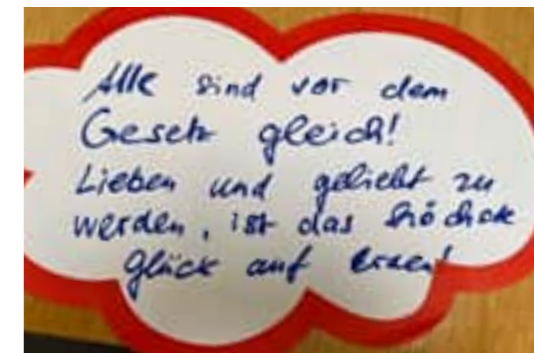 Alle sind vor dem
Gesetz gleich!
Lieben und geliebt zu
werden, ist das höchste
Glück auf Erden!